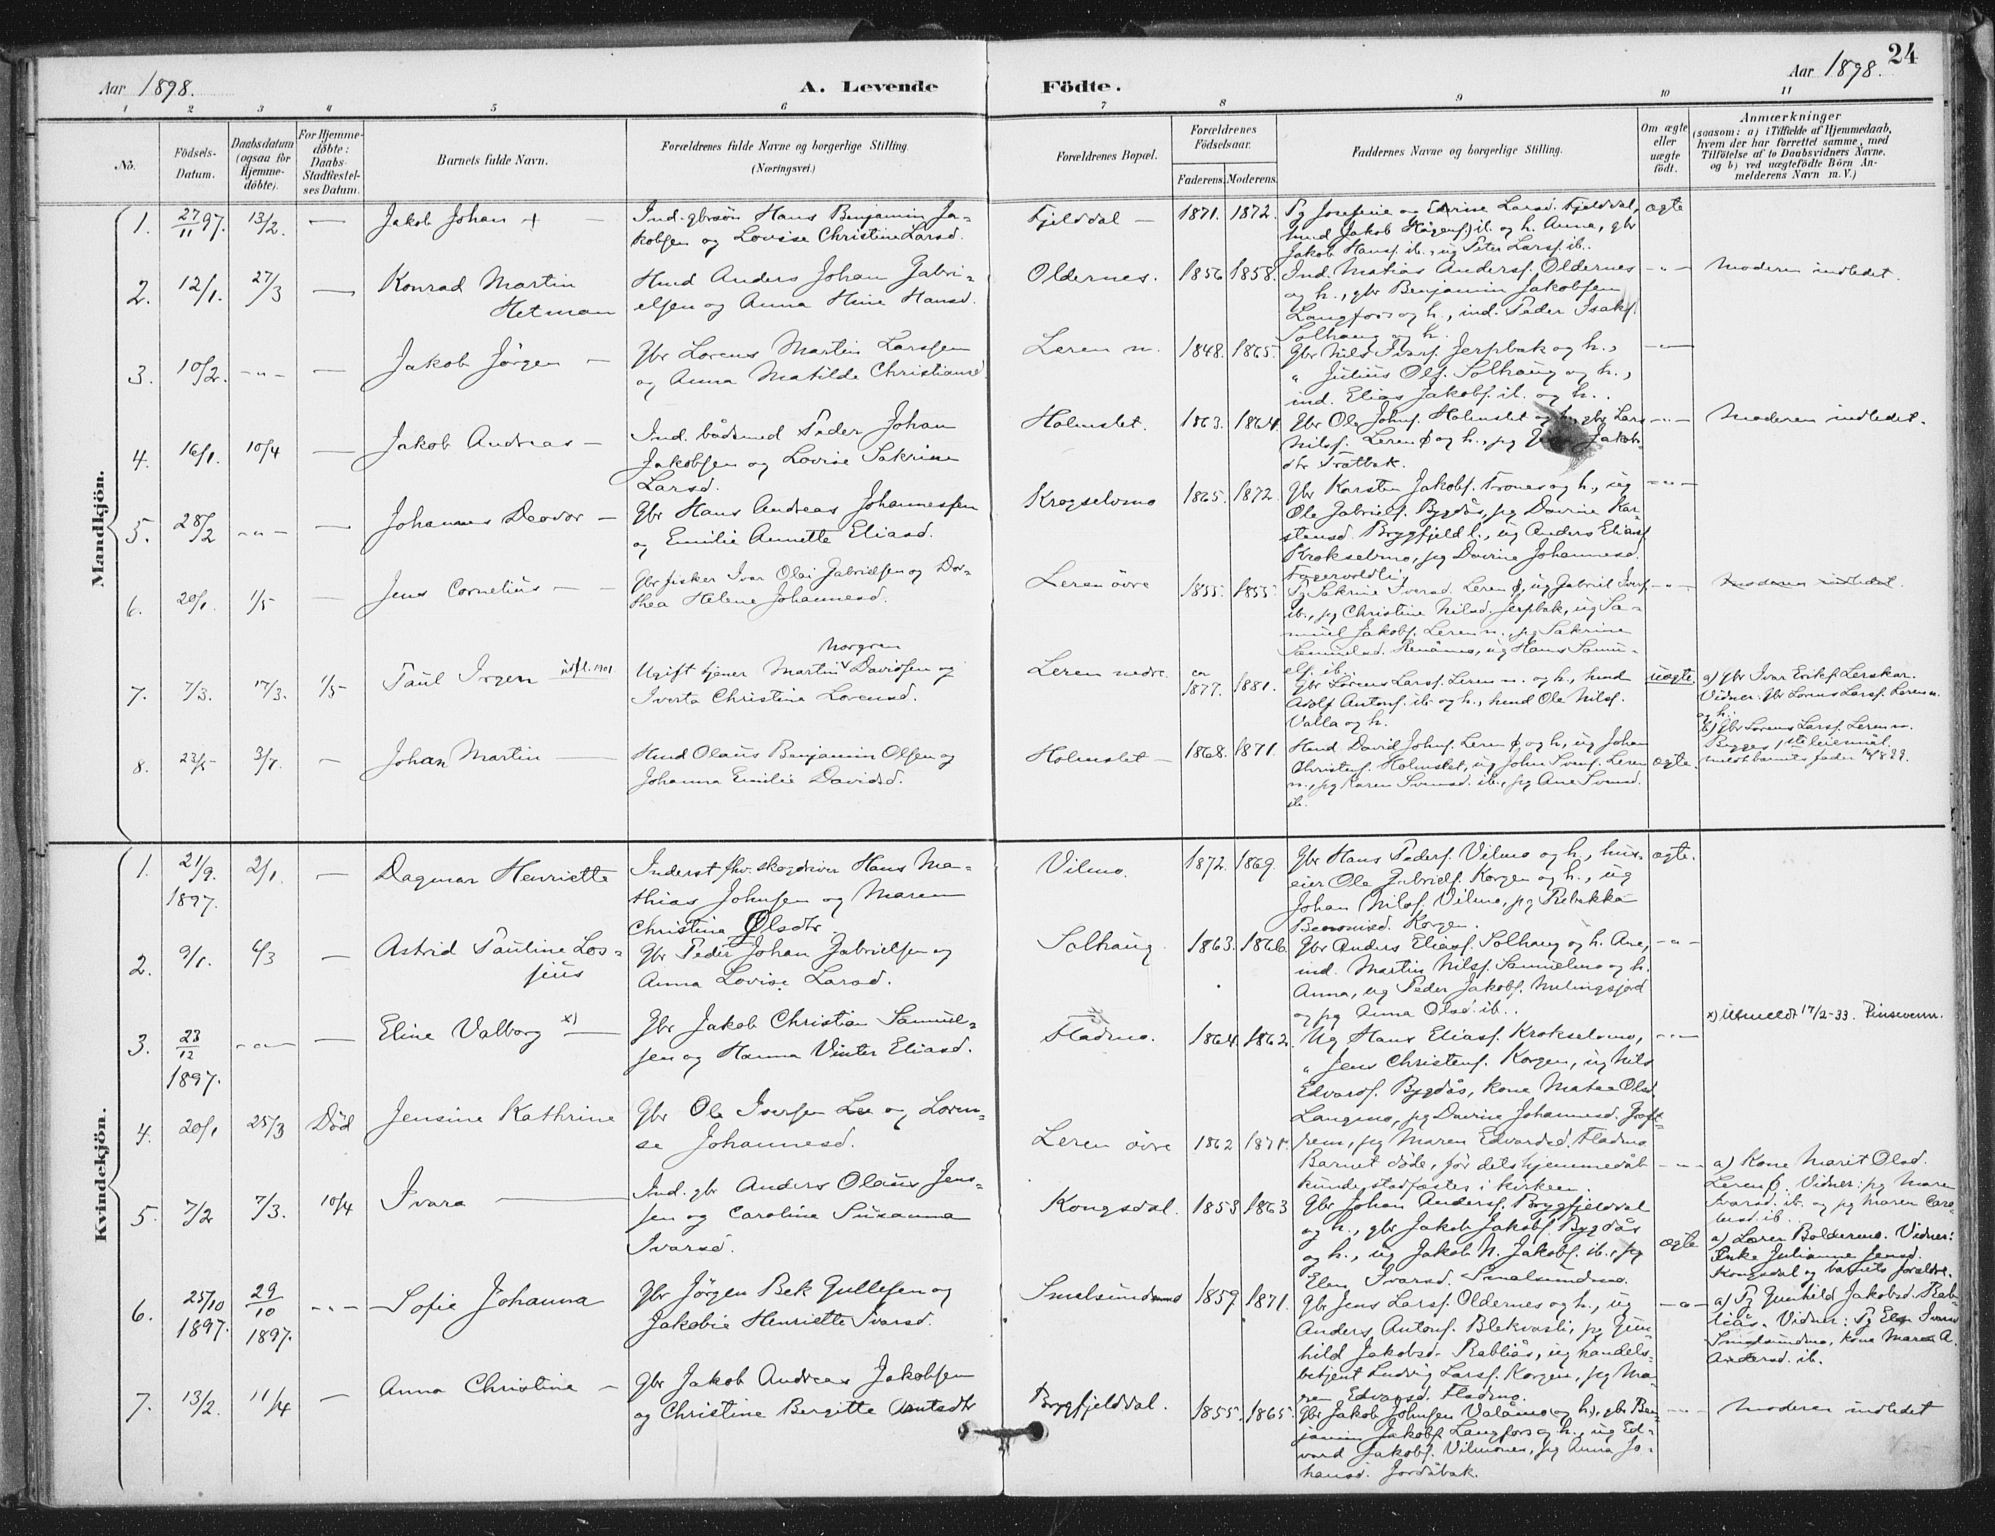 Aar 1898.
A. Levende Födte.
Aar 1898.
24
1 2 3 4 5 6 7 8 9 10 11
No.
Födsels-
Datum.
Daabsdatum
(ogsaa for
Hjemme-
döbte).
For Hjemme-
döbte:
Daabs-
Stadfæstel-
ses Datum.
Barnets fulde Navn.
Forældrenes fulde Navne og borgerlige Stilling.
(Næringsvei.)
Forældrenes Bopæl.
Forældrenes
Födselsaar.
Faderens. Moderens.
Faddernes Navne og borgerlige Stilling.
Om ægte
eller
uægte
födt.
Anmærkninger
(saasom: a) i Tilfælde af Hjemmedaab,
hvem der har forrettet samme, med
Tilföielse af to Daabsvidners Navne,
og b) ved uægtefödte Börn An-
melderens Navn m. V.)
Mandkjön.
1. 27/11 97. 13/2. — Jakob Johan + —
Ind. gbrsön Hans Benjamin Ja-
kobsen og Lovise Christine Larsd.
Fjelddal — 1871. 1872.
Pg Josefine og Edvine Larsd. Fjelddal,
hmd Jakob Hågens. ib. og h. Anna, gbr
Jakob Hans. ib., ug Peter Larsf. ib.
ægte
2. 12/1. 27/3 — Konrad Martin
Hetman
Hmd Anders Johan Gabri-
elsen og Anna Hine Hansd.
Oldernes. 1856 1858.
Ind. Matias Andersf. Oldernes
og h., gbr Benjamin Jakobsen
Langfors og h., ind. Peder Isakf.
Solhaug og h.
-"- Moderen indledet.
3. 10/2. -"- — Jakob Jörgen —
Gbr Lorens Martin Larssen
og Anna Matilde Christiansd.
Leren n. 1848. 1865.
Gbr Nils Ivarf. Jerpbak og h.,
" Julius Olf. Solhaug og h.,
ind. Elias Jakobf. ib. og h..
-"-
4. 16/1. 10/4 — Jakob Andreas —
Ind. bådsmd Peder Johan
Jakobsen og Lovise Sakrine
Larsd.
Holmslet. 1863. 1864.
Gbr Ole Johnf. Holmslet og h., gbr Lars
Nilsf. Leren ö og h., pg Jakob-
dtr Tratbak.
-"- Moderen indledet.
5. 28/2 -"- — Johannes Deodor —
Gbr Hans Andreas Johannessen
og Emilie Annette Eliasd.
Krogselvmo 1865. 1872.
Gbr Karsten Jakobf. Trones og h., ug
Ole Gabrielf. Bygdås, pg Davine Kar-
stensd. Brygfjeld l., ug Anders Eliasf.
Krokselvmo, pg Davine Johannesd.
Fagervoldli
-"-
6. 20/1. 1/5 — Jens Cornelius —
Gbr fisker Ivar Olai Gabrielsen og Dor-
thea Helene Johannesd.
Leren övre 1855. 1855.
Pg Sakrine Iversd. Leren ö, ug Gabriel Ivarf.
ib., pg Christine Nilsd. Jerpbak, ug Sa-
muel Jakobf. Leren n., pg Sakrine
Samuelsd. Renåmo, ug Hans Samu-
elf. ib.
-"- Moderen indledet.
7. 7/3. 17/3. 1/5 Paul Irgen udfl. 1901
Norgren
Ugift tjener Martin Davidsen og
Iverta Christine Lorensd.
Leren nedre. ca 1877. 1881.
Gbr Lorens Larsf. Leren n. og h., hmd
Adolf Antonf. ib og h., hmd Ole Nilsf.
Valla og h.
uægte.
a) Gbr Ivar Erikf. Lerskar.
Vidner: Gbr Lorens Larsf. Leren n.
og h.
b) Gbr Lorens Larsf. Leren n.
Begges 1ste leiermål.
8. 23/5 3/7. — Johan Martin —
Hmd Olaus Benjamin Olsen og
Johanna Emilie Davidsd.
Holmslet — 1868. 1871.
Hmd David Johnf. Leren ö og h., ug Johan
Christenf. Holmslet, ug John Svenf. Leren
n., pg Karen Svensd. ib., pg Ane Svensd.
ib.
ægte.
Kvindekjön.
1. 21/9. 1897. 2/1. — Dagmar Henriette
Inderst fhv. skogdriver Hans Ma-
thias Johnsen og Maren
Christine Olsdtr.
Vilmo. 1872. 1869.
Gbr Hans Pedersf. Vilmo og h., hus-
eier Ole Gabrielf. Korgen og h., ug
Johan Nilsf. Vilmo, pg Rebekka
Benonisd. Korgen.
ægte.
2. 9/1. 6/3 — Astrid Pauline Los-
jius
Gbr Peder Johan Gabrielsen og
Anna Lovise Larsd.
Solhaug. 1863. 1866.
Gbr Anders Eliasf. Solhaug og h. Ane,
ind. Martin Nilsf. Samuelmo og h.
Anna, ug Peder Jakobf. Mulingsjord
og pg Anna Olsd. ib..
-"-
3. 23/12 1897. -"- — Eline Valborg x) —
Gbr Jakob Christian Samuel-
sen og Hanna Vinter Eliasd.
Fladmo. 1864. 1862.
Ug Hans Eliasf. Krokselvmo,
" Jens Christenf. Korgen, ug Nils
Edvardf. Bygdås, kone Matea Olsd.
Langmo, pg Davine Johannesd. Groft-
rem, pg Maren Edvardsd. Fladmo.
-"-
x) Utmeldt 17/2-33. Pinsevenn.
4. 20/1 25/3 Död Jensine Kathrine
Gbr Ole Iversen Lee og Loren-
se Johannesd.
Leren övre 1862 1871.
Barnet döde, för dets hjemmedåb
kunde stadfæstes i kirken.
-"-
a) Kone Marit Olsd.
Leren Ö. Vidner: pg Maren
Ivarsd. ib. og pg Maren Caro-
liusd. ib.
5. 7/2 7/3. 10/4 Ivara —
Ind. gbr Anders Olaus Jens-
sen og Caroline Susanna
Ivarsd.
Kongsdal. 1853 1863
Gbr Johan Andersf. Brygfjelddal
og h., gbr Jakob Jakobf. Bygdås
og h., ug Jakob N. Jakobf. ib., pg
Elen Ivarsd. Smalsundmo.
ægte
a) Lærer Boldermo. Vidner:
Enke Julianne Jensd.
Kongsdal og barnets forældre.
6. 25/10 1897. 29/10 1897. -"- Sofie Johanna
Gbr Jörgen Bek Gullesen og
Jakobie Henriette Ivarsd.
Smalsundmo 1859. 1871.
Gbr Jens Larsf. Oldernes og h., ug
Anders Antonf. Blekvasli, pg Gun-
hild Jakobsd. Rabliås, ug handels-
betjent Ludvig Larsf. Korgen, pg Ma-
ren Edvarsd. Fladmo.
-"-
a) Pg Gunhild Jakobsd. Rab-
liås. Vidner: Pg Elen Ivarsd.
Smalsundmo, kone Maren A.
Andersd. ib.
7. 13/2. 11/4 — Anna Christine —
Gbr Jakob Andreas Jakobsen
og Christine Bergitte Arntsdtr
Brygfjelddal. 1855. 1865.
Gbr Jakob Johnsen Valåmo (og h.), gbr Ben-
jamin Jakobf. Langfors og h., ug Ed-
vard Jakobf. Vilmones, pg Anna Jo-
hansd. Jordbak.
-"- Moderen indledet